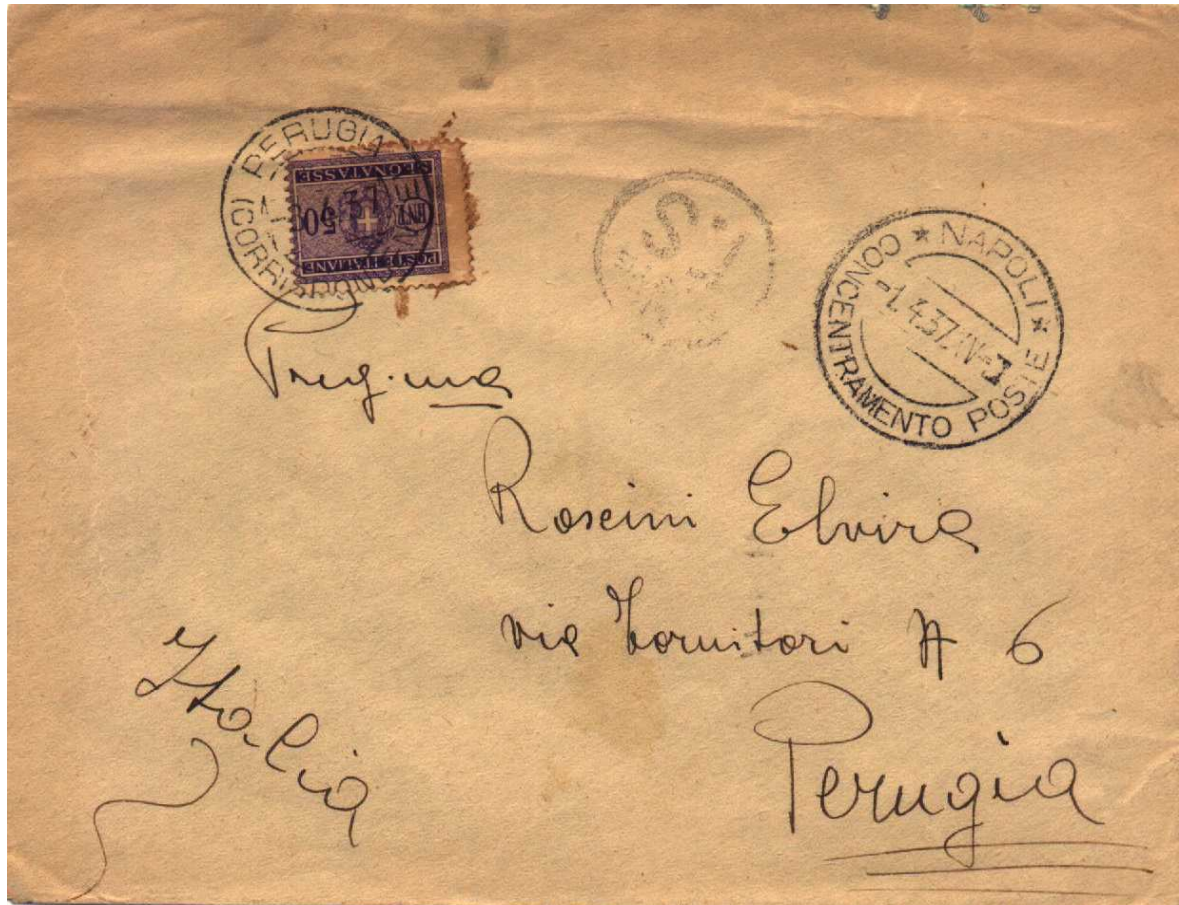 PERUGIA
(CORRISPONDENZE)
POSTE ITALIANE
CENT. 50
SEGNATASSE
★ NAPOLI ★
-1.4.37.XV-
CONCENTRAMENTO POSTE
Preg.ma
Roscini Elvira
via Tornitori N 6
Perugia
Italia